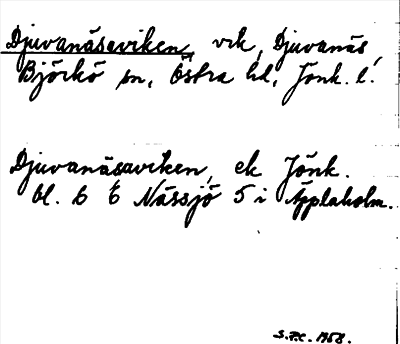 Djuvanäsaviken, vik, Djuvanäs,
Björkö sn, Östra hd, Jönk. l.
Djuvanäsaviken, ek Jönk.
bl. 6 E Nässjö 5 i Äpplaholm.
S.F.C. 1958.